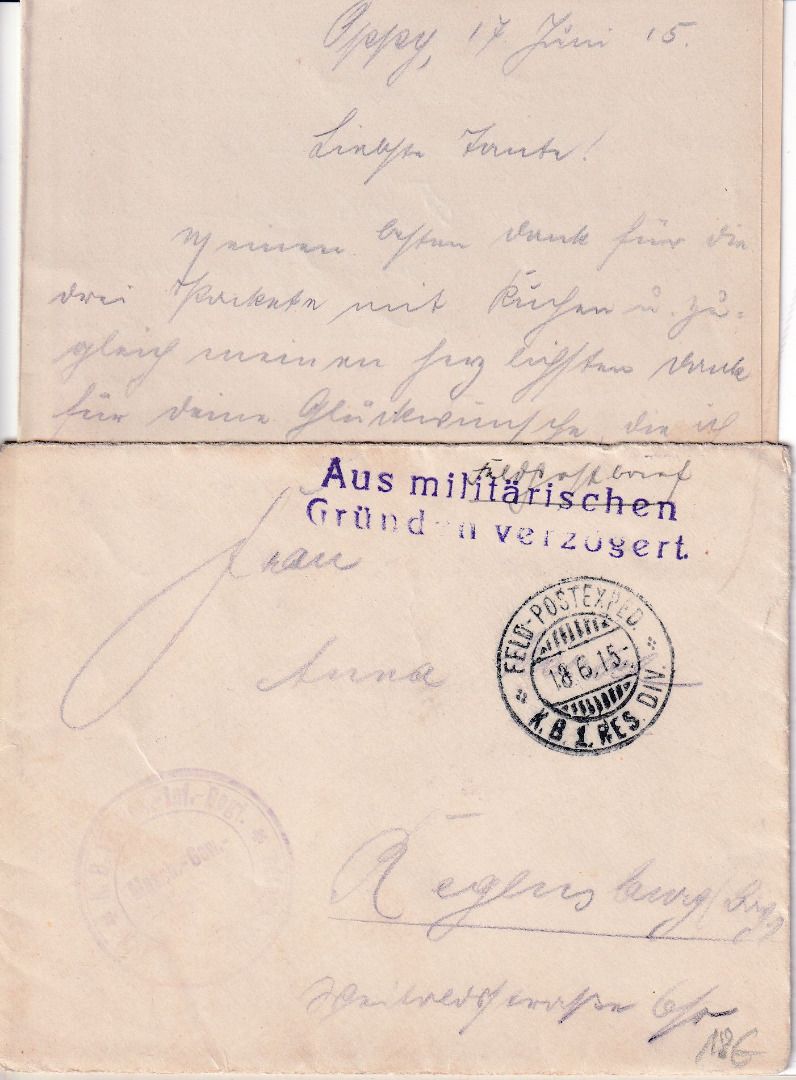 Oppy, 17 Juni 15.
Liebste Tante!
Meinen besten Dank für die
drei Packete mit Kuchen u. zu-
gleich meinen herzlichsten Dank
für deine Glückwünsche, die ich
Feldpostbrief
Aus militärischen
Gründen verzögert.
Frau
Anna
FELD-POSTEXPED.
18.6.15-
K.B. 1. RES. DIV.
Inf.-Regt.
Masch.-Gew.-
Regensburg
18€